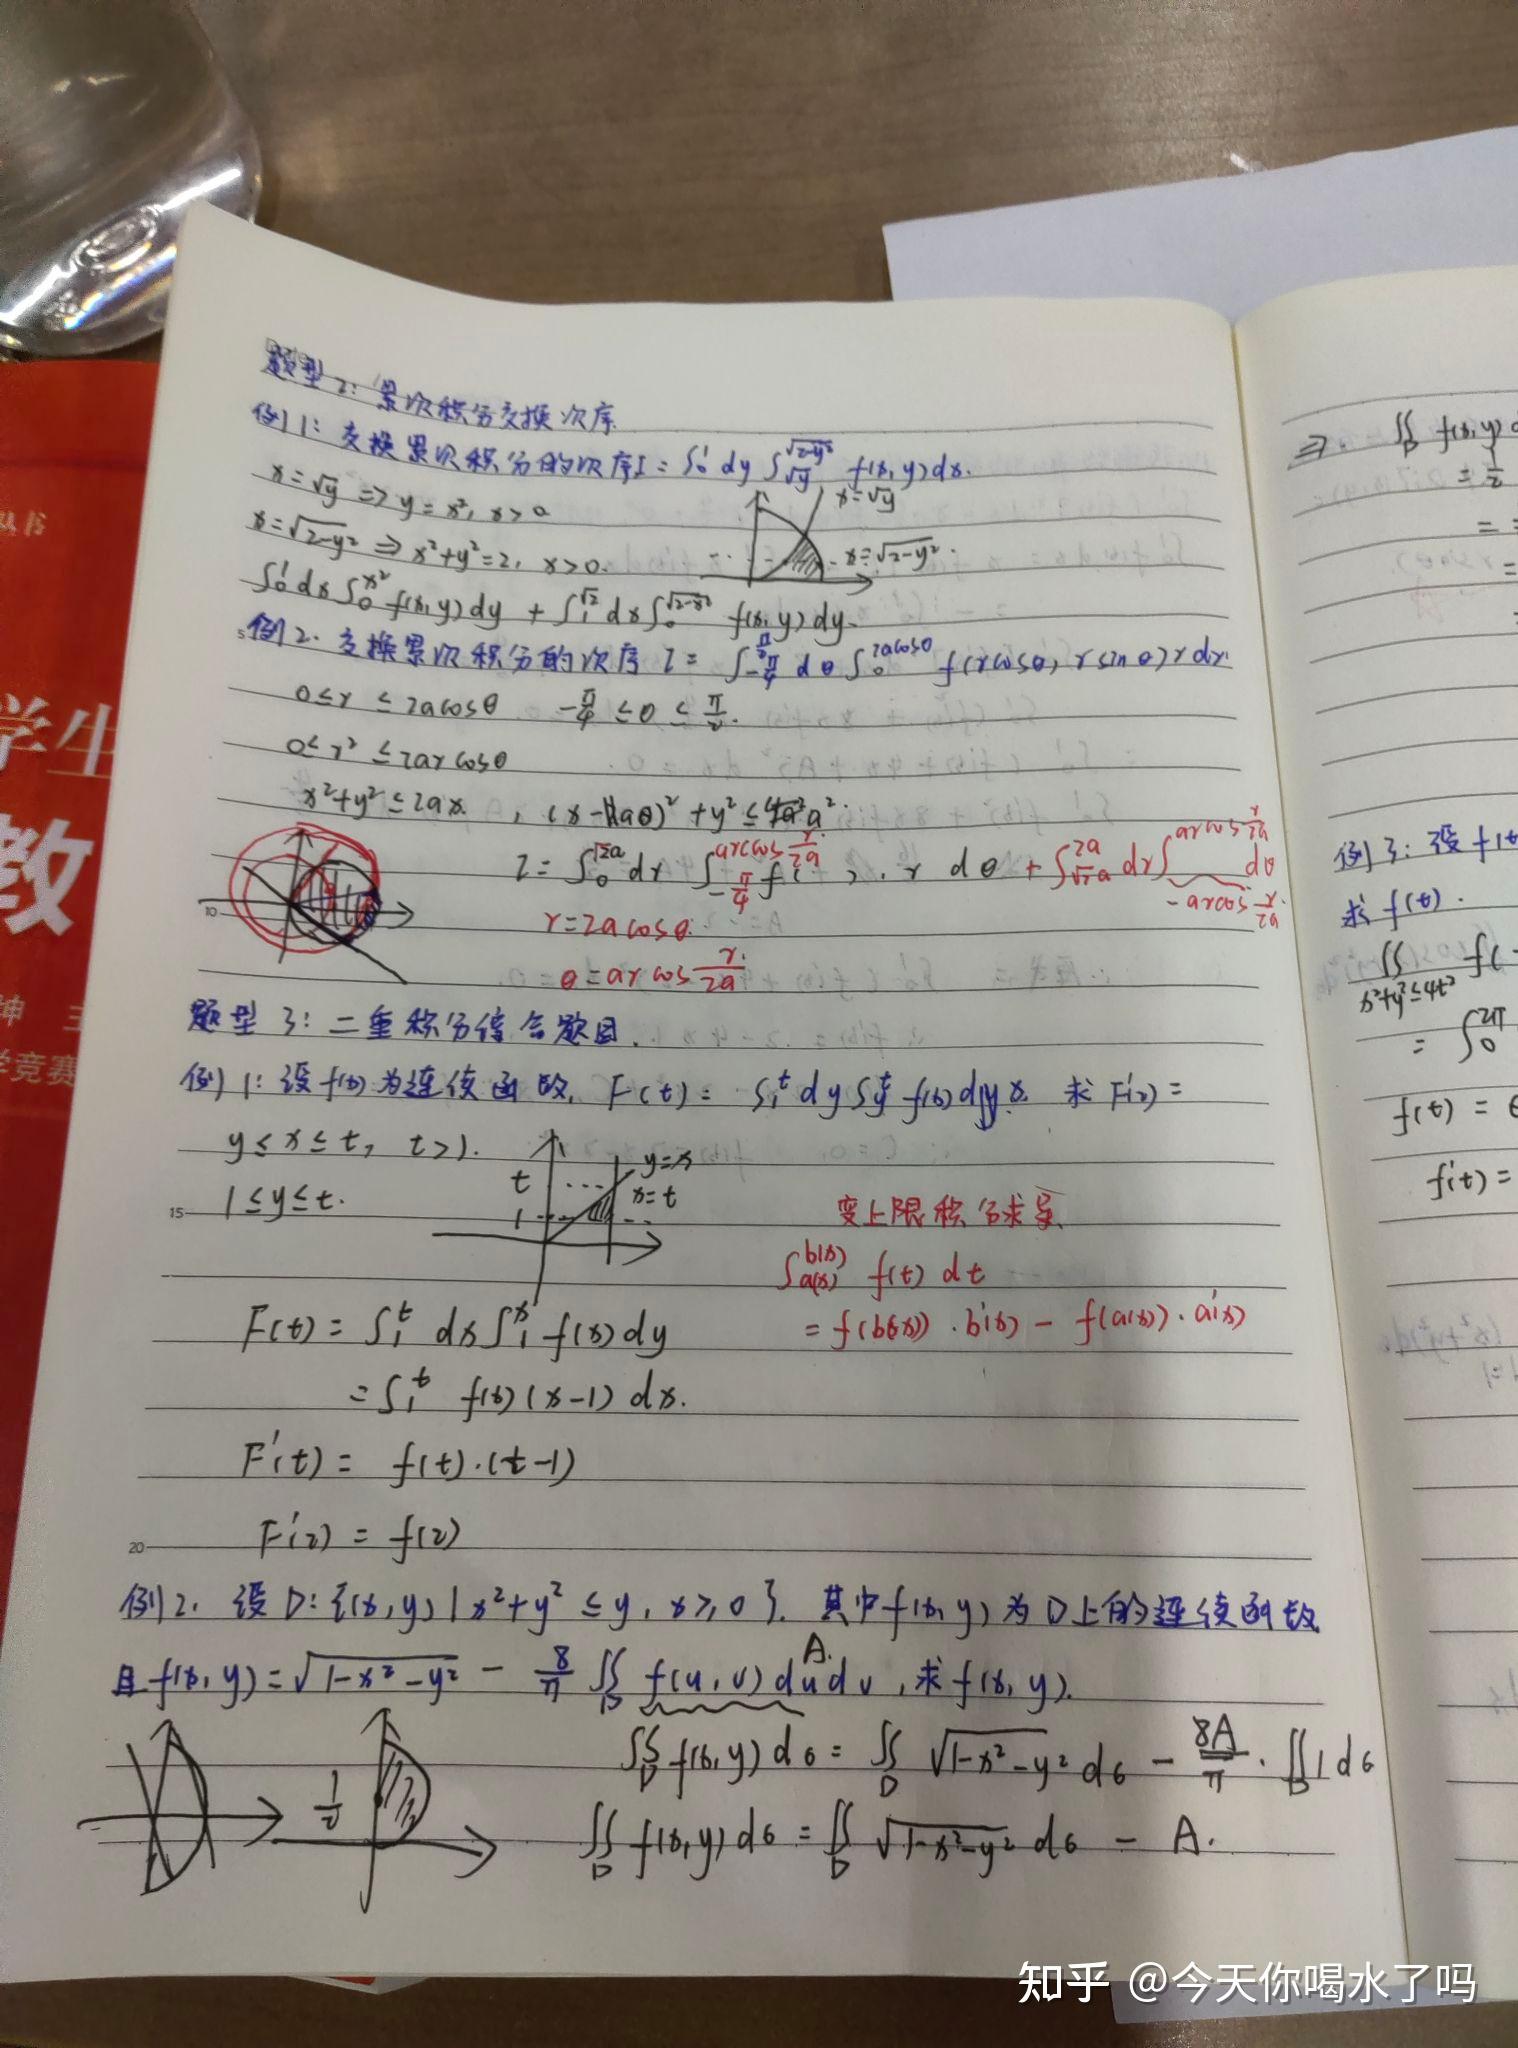 题型2：累次积分交换次序
例1：交换累次积分的次序I = ∫₀¹ dy ∫_{√y}^{√(2-y²)} f(x,y)dx.
x=√y ⇒ y=x², x>0
x=√y
x=√(2-y²) ⇒ x²+y²=2, x>0.
x=√(2-y²).
∫₀¹ dx ∫₀^{x²} f(x,y)dy + ∫₁^{√2} dx ∫₀^{√(2-x²)} f(x,y)dy.
例2. 交换累次积分的次序 I = ∫_{-π/4}^{π/2} dθ ∫₀^{2acosθ} f(rcosθ, rsinθ) r dr.
0≤r≤2acosθ -π/4 ≤θ≤ π/2.
0≤r²≤2ar cosθ
x²+y²≤2ax.
I = ∫₀^{√2a} dr ∫_{-π/4}^{arccos r/2a} f( )·r dθ + ∫_{√2a}^{2a} dr ∫_{-arccos r/2a}^{arccos r/2a} dθ
r=2acosθ.
θ=arccos r/2a
题型3：二重积分综合题目.
例1：设f(x)为连续函数, F(t) = ∫₁^t dy ∫_y^t f(x)dx. 求F'(2)=
y≤x≤t, t>1.
1≤y≤t.
t
1
y=x
x=t
变上限积分求导
∫_{a(x)}^{b(x)} f(t) dt
= f(b(x))·b'(x) - f(a(x))·a'(x)
F(t) = ∫₁^t dx ∫₁^x f(x)dy
= ∫₁^t f(x)(x-1) dx.
F'(t) = f(t)·(t-1)
F'(2) = f(2)
例2. 设D:{(x,y)|x²+y²≤y, x≥0}. 其中f(x,y)为D上的连续函数
A.
且f(x,y)=√(1-x²-y²) - 8/π ∬_D f(u,v)dudv, 求f(x,y).
1/2
∬_D f(x,y)dσ = ∬_D √(1-x²-y²) dσ - 8A/π · ∬_D 1dσ
∬_D f(x,y)dσ = ∬_D √(1-x²-y²) dσ - A.
5
10
15
20
⇒ ∬_D f(x,y)d
= 1/2
例3：设f(t
求f(t).
∬_{x²+y²≤4t²} f(
= ∫₀^{2π}
f(t) =
f'(t) =
丛书
学生
教
坤 主
学竞赛
知乎 @今天你喝水了吗